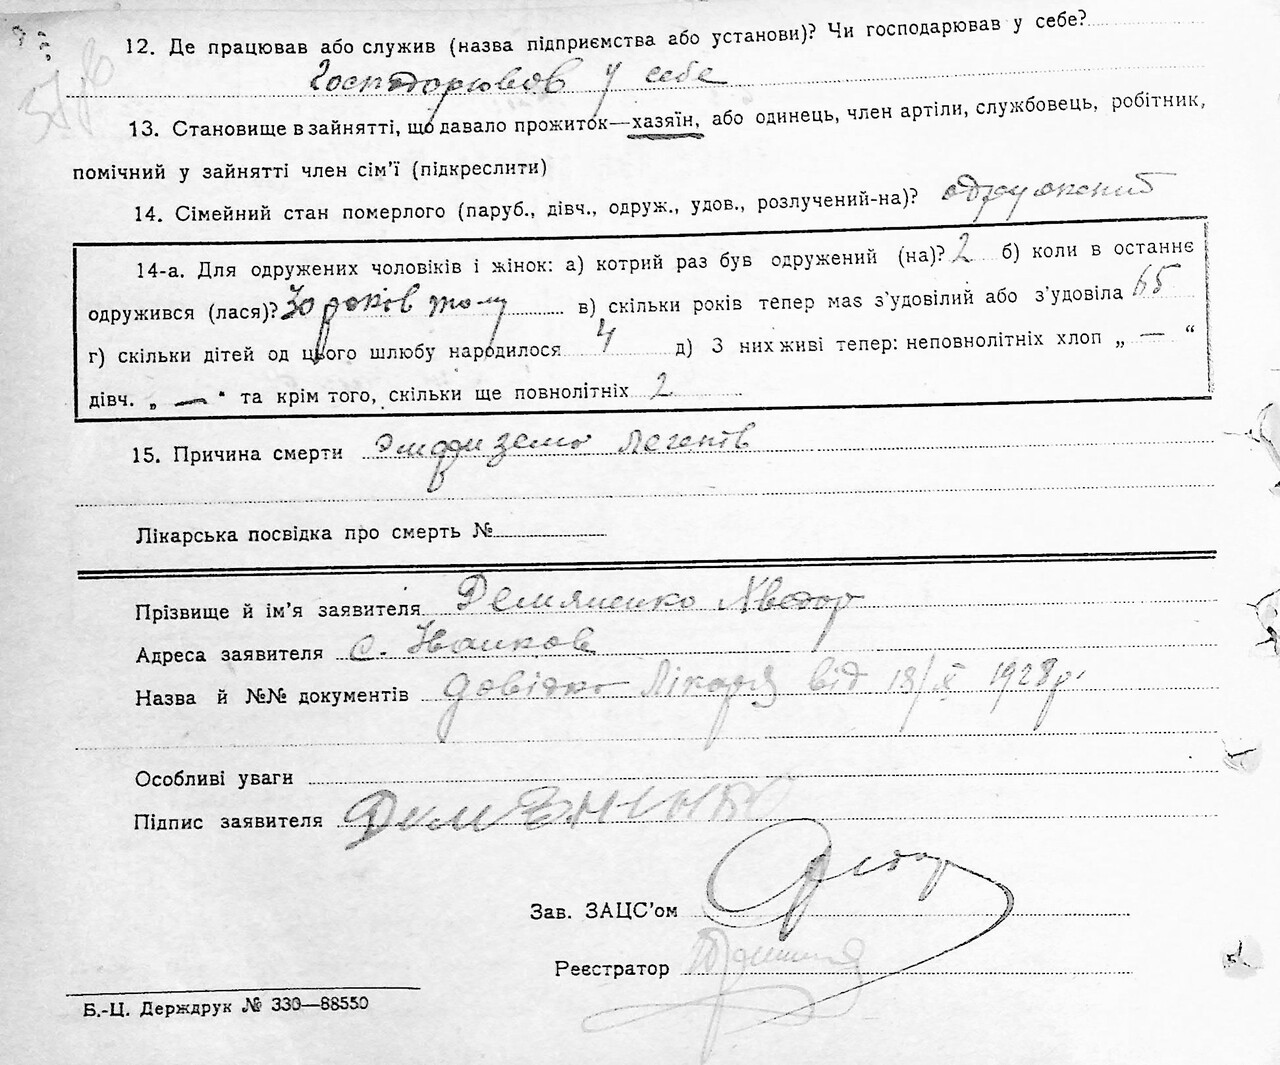 12. Де працював або служив (назва підприємства або установи)? Чи господарював у себе?
Господорював у себе
13. Становище в зайнятті, що давало прожиток—хазяїн, або одинець, член артіли, службовець, робітник,
помічний у зайнятті член сім'ї (підкреслити)
14. Сімейний стан померлого (паруб., дівч., одруж., удов., розлучений-на)? одружений
14-а. Для одружених чоловіків і жінок: а) котрий раз був одружений (на)? 2 б) коли в останнє
одружився (лася)? 30 років тому в) скільки років тепер має з'удовілий або з'удовіла 65
г) скільки дітей од цього шлюбу народилося 4 д) З них живі тепер: неповнолітніх хлоп „ — “
дівч. „ — “ та крім того, скільки ще повнолітніх 2
15. Причина смерти Эмфизема легенів
Лікарська посвідка про смерть №
Прізвище й ім'я заявителя Демяненко Хведор
Адреса заявителя с. Іванков
Назва й №№ документів довідка Лікаря від 18/X 1928р.
Особливі уваги
Підпис заявителя
Зав. ЗАЦС'ом
Реєстратор
Б.-Ц. Держдрук № 330—88550